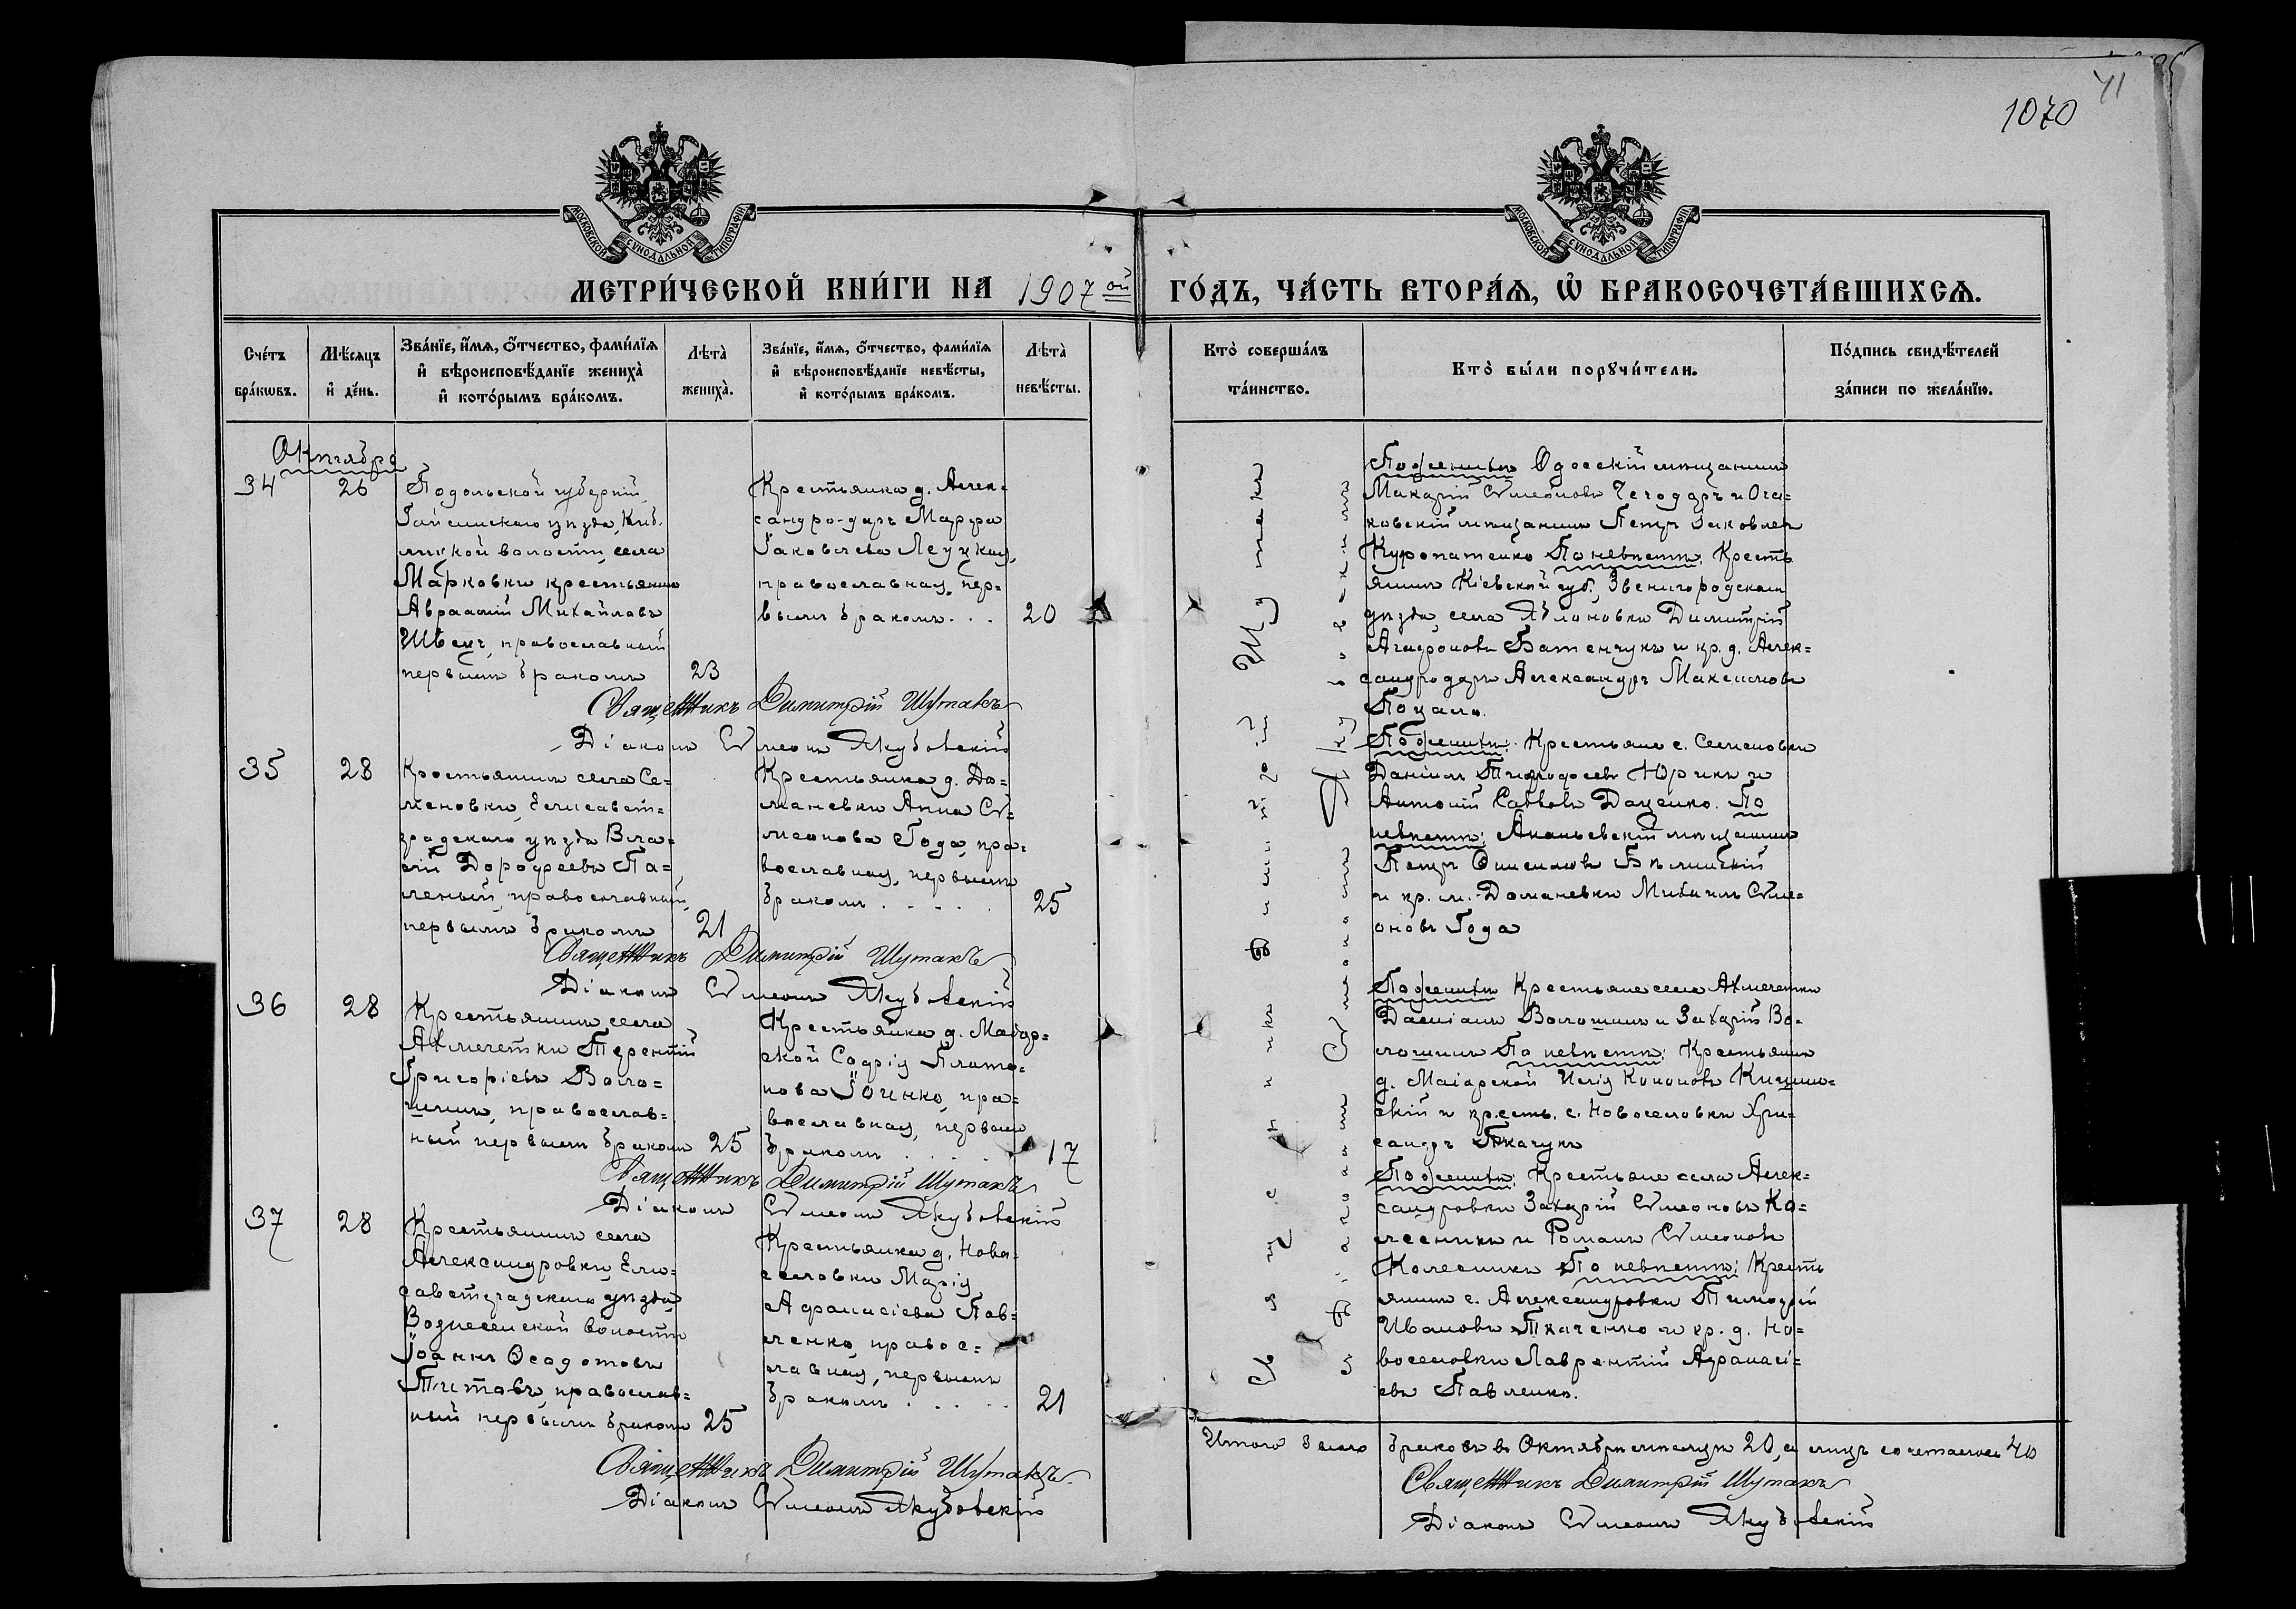 1070
41
МОСКОВСКОЙ СѴНОДАЛЬНОЙ ТИПОГРАФІИ
МОСКОВСКОЙ СѴНОДАЛЬНОЙ ТИПОГРАФІИ
МЕТРИ́ЧЕСКОЙ КНИ́ГИ НА 1907ой ГО́ДЪ, ЧА́СТЬ ВТОРА́Ѧ, Ѡ҆ БРАКОСОЧЕТА́ВШИХСѦ.
Сче́тъ
бра́кѡвъ.
Мѣ́сѧцъ
и҆ де́нь.
Зва́нїе, и҆́мѧ, ѻ҆́тчество, фами́лїѧ
и҆ вѣроисповѣ́данїе жениха̀
и҆ кото́рымъ бра́комъ.
Лѣта̀
жениха̀.
Зва́нїе, и҆́мѧ, ѻ҆́тчество, фами́лїѧ
и҆ вѣроисповѣ́данїе невѣ́сты,
и҆ кото́рымъ бра́комъ.
Лѣта̀
невѣ́сты.
Кто̀ соверша́лъ
та́инство.
Кто̀ бы́ли порꙋчи́тели.
По́дпись свидѣ́телей
за́писи по жела́нїю.
Октября
34
26
Подольской губерніи,
Гайсинскаго уѣзда, Киб-
линской волости, села
Марковки крестьянинъ
Авраамій Михайловъ
Швецъ, православный
первымъ бракомъ
23
Крестьянка д. Алек-
сандро-даръ Марфа
Іаковлева Леуцкая,
православная, пер-
вымъ бракомъ...
20
Священникъ Димитрій Шутакъ
Діаконъ Сѵмеонъ Якубовскій
35
28
Крестьянинъ села Се-
меновки, Елисавет-
градскаго уѣзда Вла-
сій Дорофеевъ Па-
леный, православный,
первымъ бракомъ
21
Крестьянка д. До-
маневки Анна Сѵ-
меонова Года, пра-
вославная, первымъ
бракомъ.....
25
Священникъ Димитрій Шутакъ
Діаконъ Сѵмеонъ Якубовскій
36
28
Крестьянинъ села
Ахмечетки Терентій
Григоріевъ Воло-
шинъ, православ-
ный первымъ бракомъ
25
Крестьянка д. Маіор-
ской Софія Плато-
нова, пра-
вославная, первымъ
бракомъ.....
17
Священникъ Димитрій Шутакъ
Діаконъ Сѵмеонъ Якубовскій
37
28
Крестьянинъ села
Александровки, Ели-
саветградскаго уѣзда
Вознесенской волости
Іоаннъ Ѳеодотовъ
Титовъ, православ-
ный первымъ бракомъ
25
Крестьянка д. Ново-
селовки Марія
Афанасіева Пав-
ленко, правос-
лавная, первымъ
бракомъ.....
21
Священникъ Димитрій Шутакъ
Діаконъ Сѵмеонъ Якубовскій
Священникъ Димитрій Шутакъ
съ діакономъ Сѵмеономъ Якубовскимъ
По женихѣ Одесскій мѣщанинъ
Макарій Сѵмеоновъ Чегодаръ и Оча-
ковскій мѣщанинъ Петръ Іаковлевъ
Куропатенко По невѣстѣ: Кресть
янинъ Кіевской губ., Звенигородскаго
уѣзда, села Яблоновки Димитрій
Агафоновъ Батенчукъ и кр. д. Алек-
сандродаръ Александръ Максимовъ
По женихѣ: Крестьяне с. Семеновки
Даніилъ Тимофеевъ Юрикъ и
Антоній Савовъ Даценко. По
невѣстѣ: Ананьевскій мѣщанинъ
Петръ Онисимовъ Бѣлинскій
и кр. м. Доманевки Михаилъ Сѵме-
оновъ Года
По женихѣ Крестьяне села Ахмечетки
Даміанъ Волошинъ и Захарій Во-
лошинъ По невѣстѣ: Крестьянинъ
д. Маіорской Илія Кононовъ
и крест. с. Новоселовки Хри-
сандръ Ткачукъ
По женихѣ: Крестьяне села Алек-
сандровки Захарій Сѵмеоновъ Ко-
лесникъ и Романъ Сѵмеоновъ
Колесникъ По невѣстѣ: Кресть
янинъ с. Александровки Тимофей
Ивановъ Ткаченко и кр. д. Но-
воселовки Лаврентій Афанасі-
евъ Павленко.
Итого всего браковъ въ Октябрѣ мѣсяцѣ 20, а лицъ сочеталось 40
Священникъ Димитрій Шутакъ
Діаконъ Сѵмеонъ Якубовскій